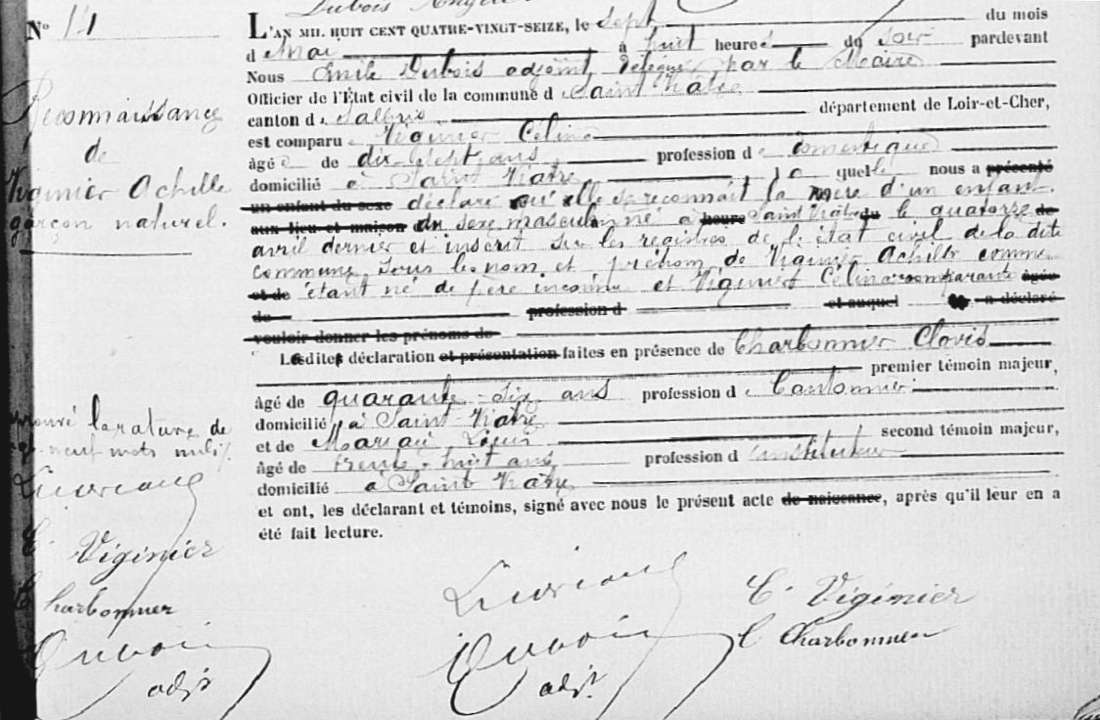 Dubois
Nº 14
L'AN MIL HUIT CENT QUATRE-VINGT-SEIZE, le sept du mois
d Mai à huit heures du soir pardevant
Nous Emile Dubois adjoint délégué par le Maire
Officier de l'État civil de la commune d e Saint Viatre
canton d e Salbris département de Loir-et-Cher,
est comparu e Viginier Célina
âgé e de dix-sept ans, profession d e domestique
domicilié à Saint Viatre la quelle nous a présenté
un enfant du sexe déclaré qu'elle se reconnaît la mère d'un enfant
aux lieu et maison du sexe masculin né à heure Saint Viatre du le quatorze de
avril dernier et inscrit sur les registres de l'état civil de la dite
commune sous les nom et prénom de Viginier Achille comme
et de étant né de père inconnu et Viginier Célina comparante âgée
de profession d et auquel a déclaré
vouloir donner les prénoms de
Ledites déclaration et présentation faites en présence de Charbonnier Clovis
premier témoin majeur,
âgé de quarante-six ans profession d e Cantonnier
domicilié à Saint Viatre
et de second témoin majeur,
âgé de trente-huit ans profession d instituteur
domicilié à Saint Viatre
et ont, les déclarant et témoins, signé avec nous le présent acte de naissance, après qu'il leur en a
été fait lecture.
Reconnaissance
de
Viginier Achille
garçon naturel.
la rature de
neuf mots nuls
C. Viginier
Charbonnier
Dubois
adjt
C. Viginier
Dubois
C Charbonnier
adjt